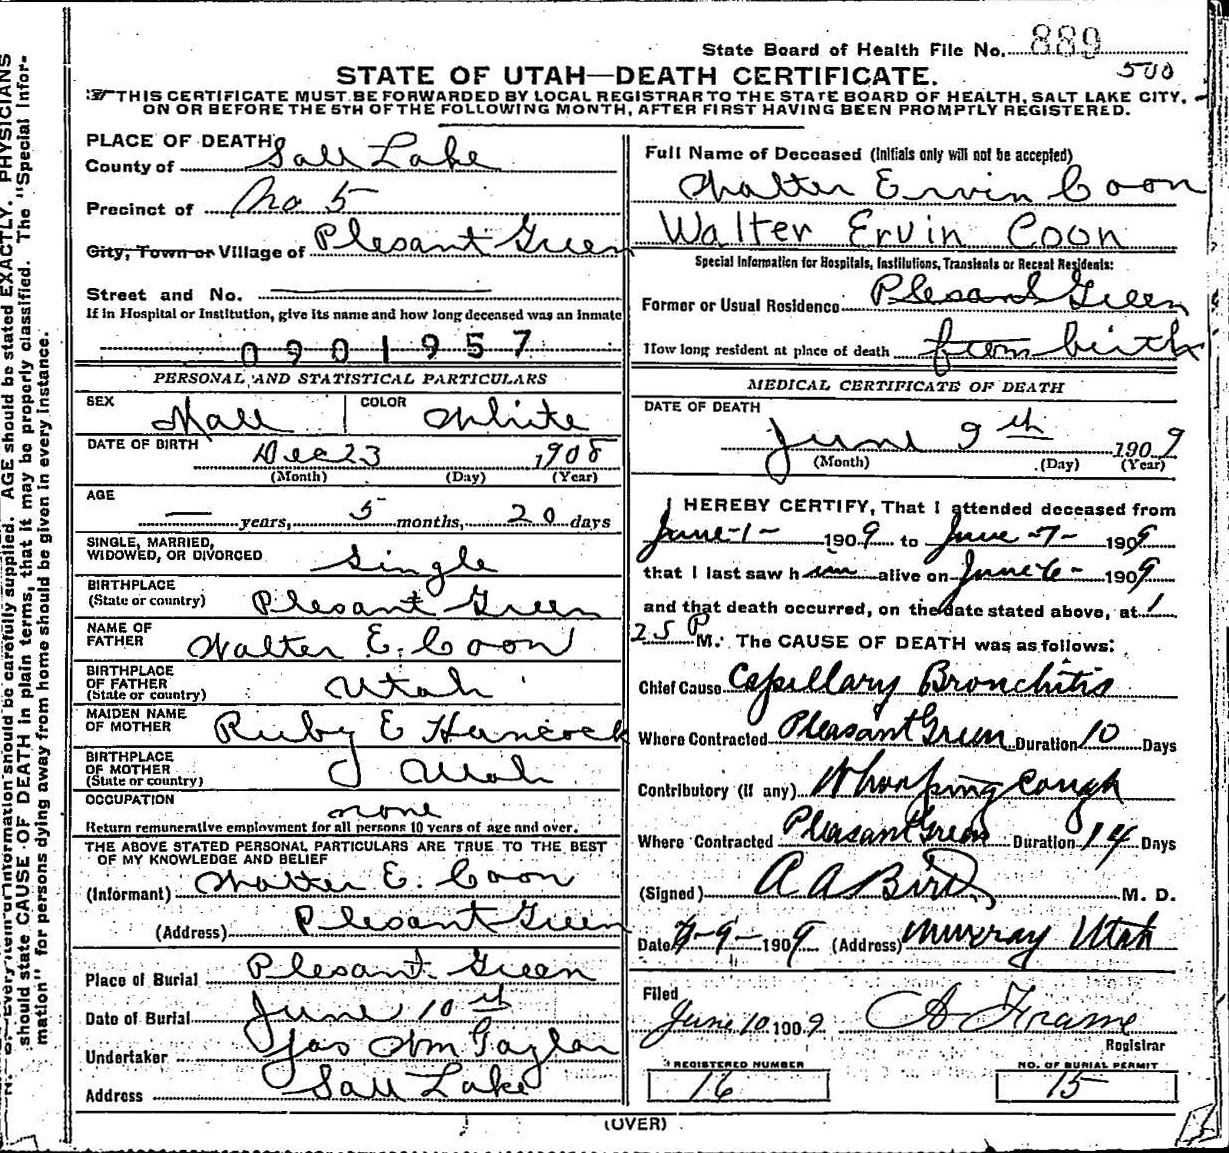 State Board of Health File No. 889
500
STATE OF UTAH—DEATH CERTIFICATE.
THIS CERTIFICATE MUST BE FORWARDED BY LOCAL REGISTRAR TO THE STATE BOARD OF HEALTH, SALT LAKE CITY,
ON OR BEFORE THE 5TH OF THE FOLLOWING MONTH, AFTER FIRST HAVING BEEN PROMPTLY REGISTERED.
PLACE OF DEATH
County of Sall Lake
Precinct of No 5
City, Town or Village of Plesant Green
Street and No.
If in Hospital or Institution, give its name and how long deceased was an inmate
0901957
PERSONAL AND STATISTICAL PARTICULARS
SEX Mall COLOR White
DATE OF BIRTH Dec 23 1908
(Month) (Day) (Year)
AGE — years, 5 months, 20 days
SINGLE, MARRIED,
WIDOWED, OR DIVORCED Single
BIRTHPLACE
(State or country) Plesant Green
NAME OF
FATHER Walter E. Coon
BIRTHPLACE
OF FATHER
(State or country) Utah
MAIDEN NAME
OF MOTHER Ruby E Hancock
BIRTHPLACE
OF MOTHER
(State or country) Utah
OCCUPATION none
Return remunerative employment for all persons 10 years of age and over.
THE ABOVE STATED PERSONAL PARTICULARS ARE TRUE TO THE BEST
OF MY KNOWLEDGE AND BELIEF
(Informant) Walter E. Coon
(Address) Plesant Green
Place of Burial Plesant Green
Date of Burial June 10th
Undertaker Jos Wm Taylor
Address Sall Lake
Full Name of Deceased (Initials only will not be accepted)
Walter Ervin Coon
Walter Ervin Coon
Special Information for Hospitals, Institutions, Transients or Recent Residents:
Former or Usual Residence Plesant Green
How long resident at place of death from birth
MEDICAL CERTIFICATE OF DEATH
DATE OF DEATH
June 9th 1909
(Month) (Day) (Year)
I HEREBY CERTIFY, That I attended deceased from
June-1- 1909 to June-7- 1909
that I last saw him alive on June 6- 1909
and that death occurred, on the date stated above, at 1
25 P M. The CAUSE OF DEATH was as follows:
Chief Cause Capillary Bronchitis
Where Contracted Pleasant Green Duration 10 Days
Contributory (if any) Whooping Cough
Where Contracted Pleasant Green Duration 14 Days
(Signed) A A Bird M. D.
Date 6-9-1909 (Address) Murray Utah
Filed
June 10 1909 A Frame
Registrar
REGISTERED NUMBER
16
NO. OF BURIAL PERMIT
15
(OVER)
N. B.—Every item of information should be carefully supplied. AGE should be stated EXACTLY. PHYSICIANS
should state CAUSE OF DEATH in plain terms, that it may be properly classified. The "Special Infor-
mation" for persons dying away from home should be given in every instance.